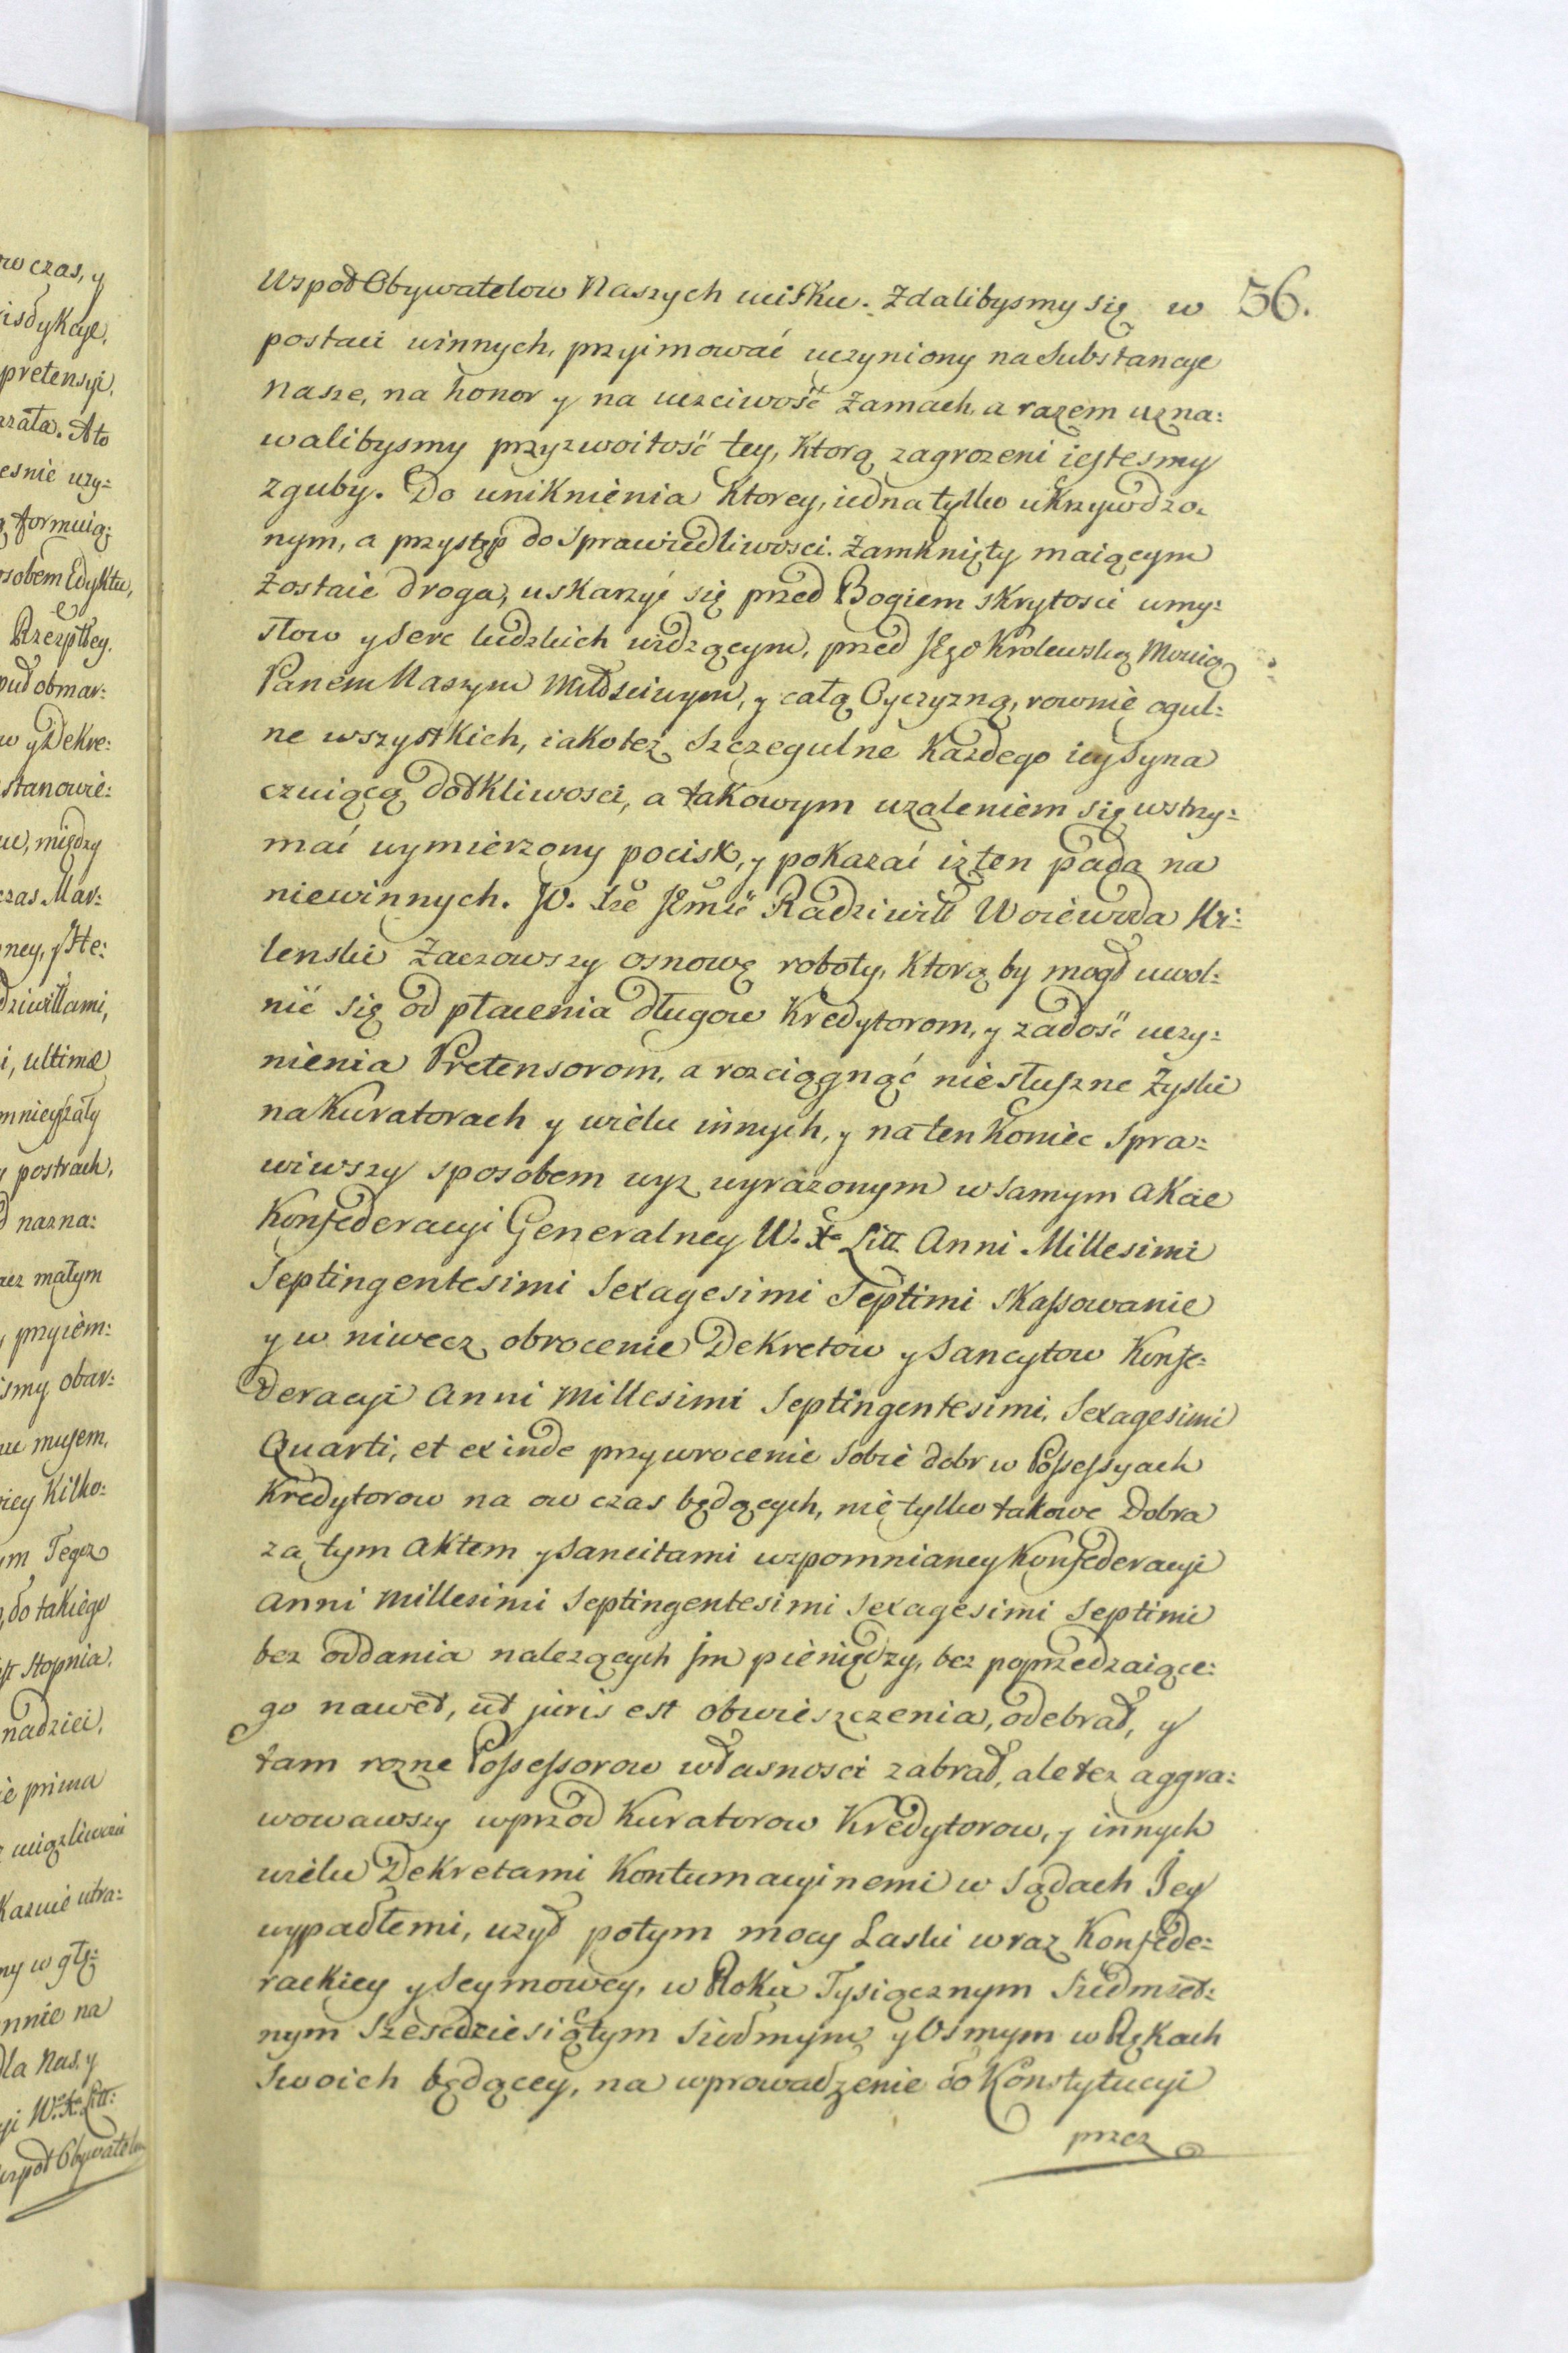 ow czas, y
isdykcye,
pretensyi,
Ato
esnie uzy:
formuią:
osobem Edyktu,
Rzeczpltey.
obmar:
w y Dekre:
stanowie:
między
czas Mar:
ney, y He:
dziwiłłami,
i, ultimæ
mnieyszały
y postrach,
nazna:
małym
przyiem:
ismy obar:
musem,
kilko:
ym Tegoż
do takiego
Stopnia.
nadziei,
ie prima
utra:
ny w głę:
nnie na
dla Nas, y
yi W. X. Litt:
wspoł Obywatelow
56.
Wspoł Obywatelow Naszych ucisku. Zdalibysmy się w
postaci winnych, przyimować uczyniony na Substancye
Nasze, na honor y na uczciwość zamach, a razem uzna:
walibysmy przyzwoitość tey, ktorą zagrozeni iestesmy
zguby. Do uniknienia ktorey, iedna tylko ukrzywdzo:
nym, a przystęp do Sprawiedliwosci zamknięty maiącym
zostaie droga, uskarzyć się przed Bogiem skrytosci umy:
słow y serc ludzkich widzącym, przed JEgo Krolewską Mością
Panem Naszym Miłościwym, y całą Oyczyzną, rownie ogul:
ne wszystkich, iako też szczegulne kazdego iey Syna
czuiącą dotkliwosci, a takowym uzaleniem się wstrzy:
mać wymierzony pocisk, y pokazać iż ten pada na
niewinnych. JO. Xże JEmść Radziwiłł Woiewoda Wi:
lenski zacząwszy osnowę roboty, ktorą by mogł uwol:
nić się od płacenia długow Kredytorom, y zadość uczy:
nienia Pretensorom, a rozciągnąć niesłuszne Zyski
na Kuratorach y wielu innych, y na ten koniec spra:
wiwszy sposobem wyż wyrazonym w samym akcie
Konfederacyi Generalney W. X. Litt. Anni Millesimi
Septingentesimi Sexagesimi Septimi skassowanie
y w niwecz obrocenie Dekretow y Sancytow Konfe:
deracyi Anni Millesimi Septingentesimi, Sexagesimi
Quarti, et exinde przywrocenie sobie dobr w Possessyach
Kredytorow na ow czas będących, nie tylko takowe Dobra
za tym aktem y Sancitami wzpomnianey Konfederacyi
Anni Millesimi Septingentesimi Sexagesimi Septimi
bez oddania nalezących Jm pieniędzy, bez poprzedzaiące:
go nawet, ut juris est obwieszczenia, odebrał, y
tam rozne Possessorow własnosci zabrał, ale też aggra:
wowawszy wprzod Kuratorow Kredytorow, y innych
wielu Dekretami Kontumacyinemi w Sądach Jey
wypadłemi, uzył potym mocy Laski wraz Konfede:
rackiey y Seymowey, w Roku Tysiącznym Siedmset:
nym Szescdziesiątym Siodmym y Osmym w Rękach
Swoich będącey, na wprowadzenie do Konstytucyi
przez